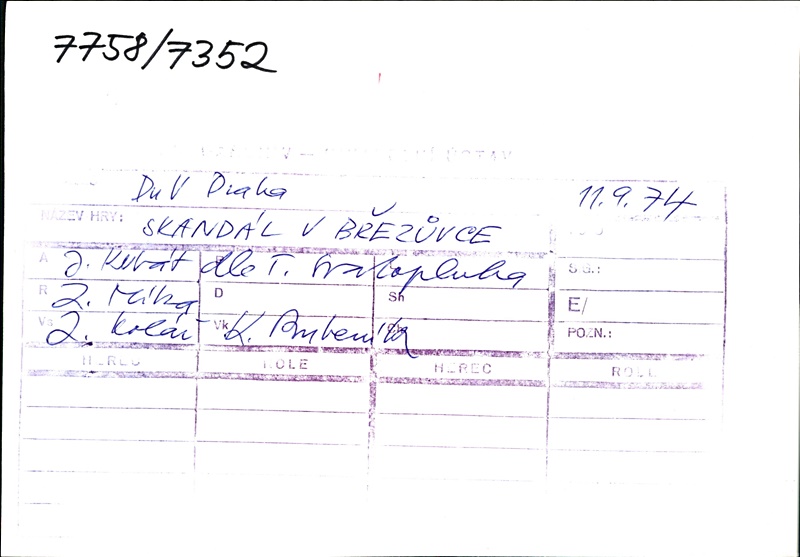 7758/7352
DnV Praha 11.9.74
NÁZEV HRY: SKANDÁL V BŘEZŮVCE
A J. Kubát dle T. Svatopluka SG.:
R Z. Míka D Sh E/
Vs Z. Kolář VK K. POZN.:
HEREC ROLE HEREC ROLE